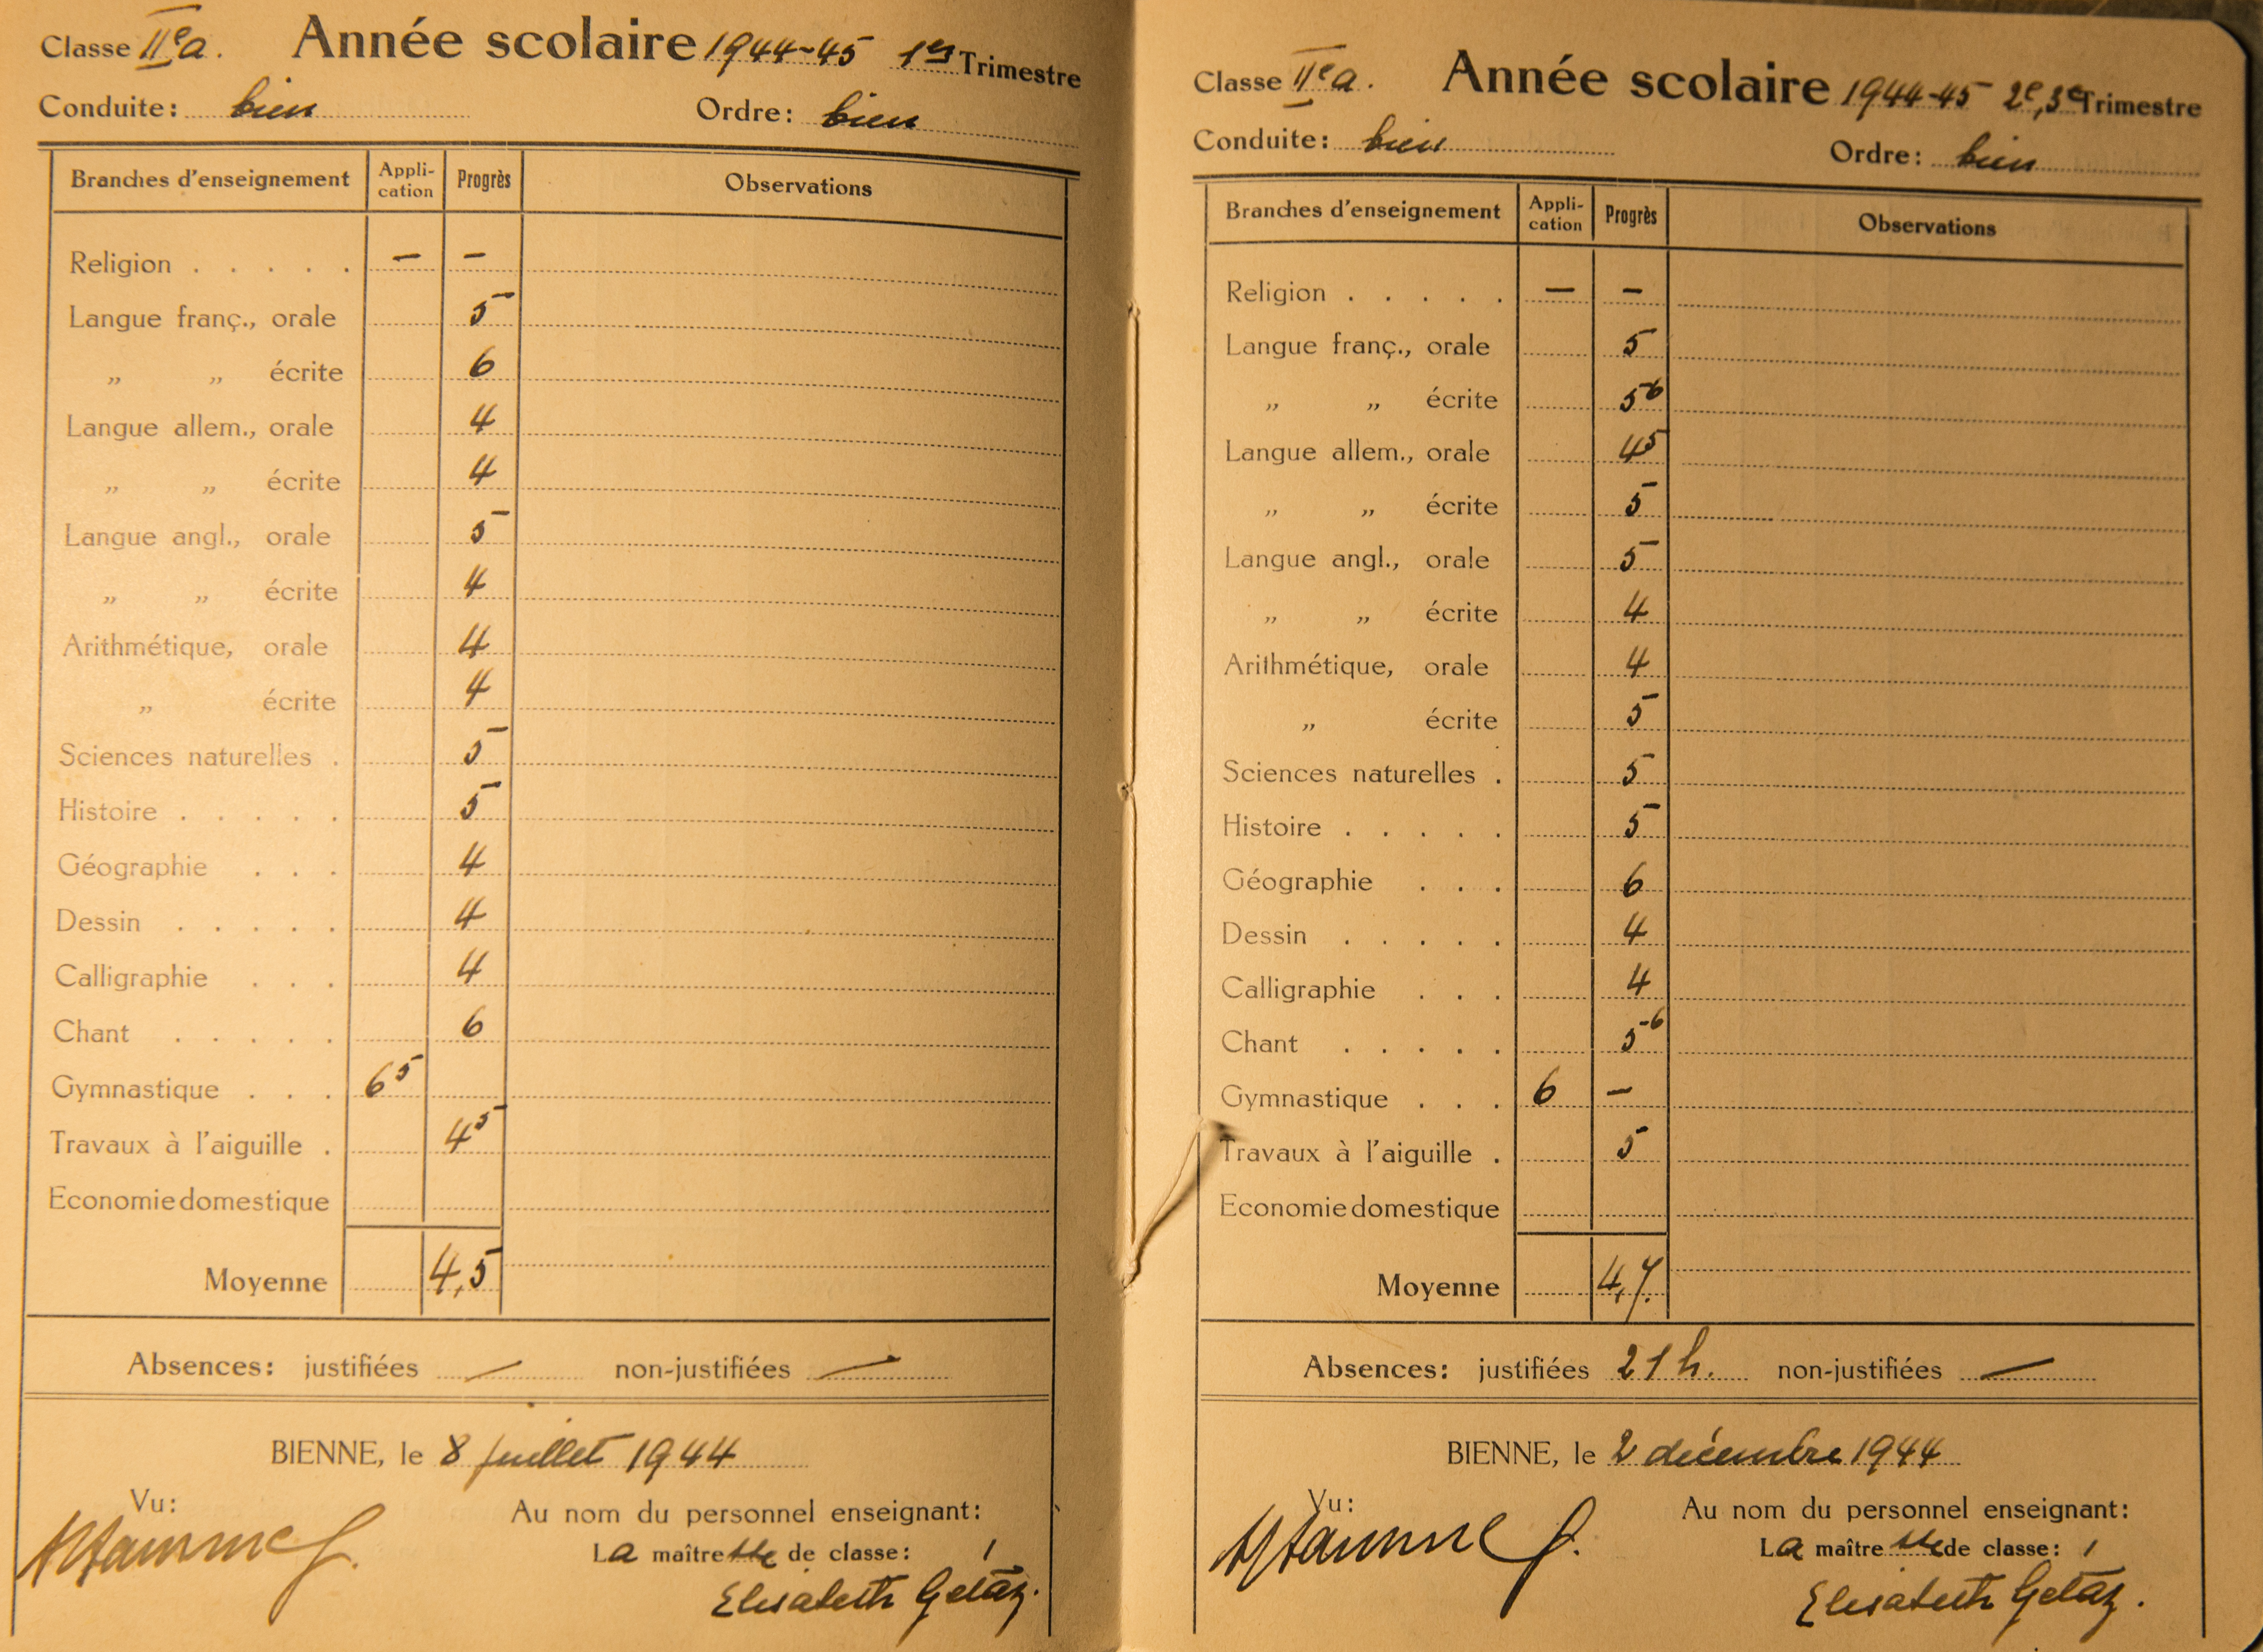 Classe IIe a. Année scolaire 1944-45 1er Trimestre
Conduite: bien Ordre: bien
Branches d'enseignement Appli-cation Progrès Observations
Religion . . . . . — —
Langue franç., orale 5
„ „ écrite 6
Langue allem., orale 4
„ „ écrite 4
Langue angl., orale 5
„ „ écrite 4
Arithmétique, orale 4
„ écrite 4
Sciences naturelles . 5
Histoire . . . . . 5
Géographie . . . 4
Dessin . . . . . 4
Calligraphie . . . 4
Chant . . . . . 6
Gymnastique . . . 6 5
Travaux à l'aiguille . 4 5
Economie domestique
Moyenne 4,5
Absences: justifiées — non-justifiées —
BIENNE, le 8 juillet 1944
Vu: Au nom du personnel enseignant:
La maîtresse de classe:
Elisabeth Gétaz.
Classe IIe a. Année scolaire 1944-45 2e, 3e Trimestre
Conduite: bien Ordre: bien
Branches d'enseignement Appli-cation Progrès Observations
Religion . . . . . — —
Langue franç., orale 5
„ „ écrite 5 6
Langue allem., orale 4 5
„ „ écrite 5
Langue angl., orale 5
„ „ écrite 4
Arithmétique, orale 4
„ écrite 5
Sciences naturelles . 5
Histoire . . . . . 5
Géographie . . . 6
Dessin . . . . . 4
Calligraphie . . . 4
Chant . . . . . 5-6
Gymnastique . . . 6 —
Travaux à l'aiguille . 5
Economie domestique
Moyenne 4,7.
Absences: justifiées 21 h. non-justifiées —
BIENNE, le 2 décembre 1944
Vu: Au nom du personnel enseignant:
La maîtresse de classe:
Elisabeth Gétaz.